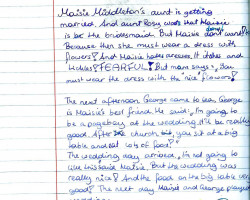 Maisie Middleton's aunt is getting
married. And aunt Rosy wants that Maisie
is be the bridesmaid. But Maisie don't want
Because then she must wear a dress with
flowers! And Maisie hates dresses. It itches and
FEARFUL! But mam says, You
must wear the dress with the 'nice' flowers!
The next afternoon George came to see. George
is Maisie's best friend. He said, I'm going to
be a pageboy at the wedding. It'll be quite
good. After church you sit at a big
table and eat lots of food."
The wedding day arrived, I'm not going to
like this said Maisie. But the wedding was
really nice! And the food on the big table very
good! The next day Maisie and George played